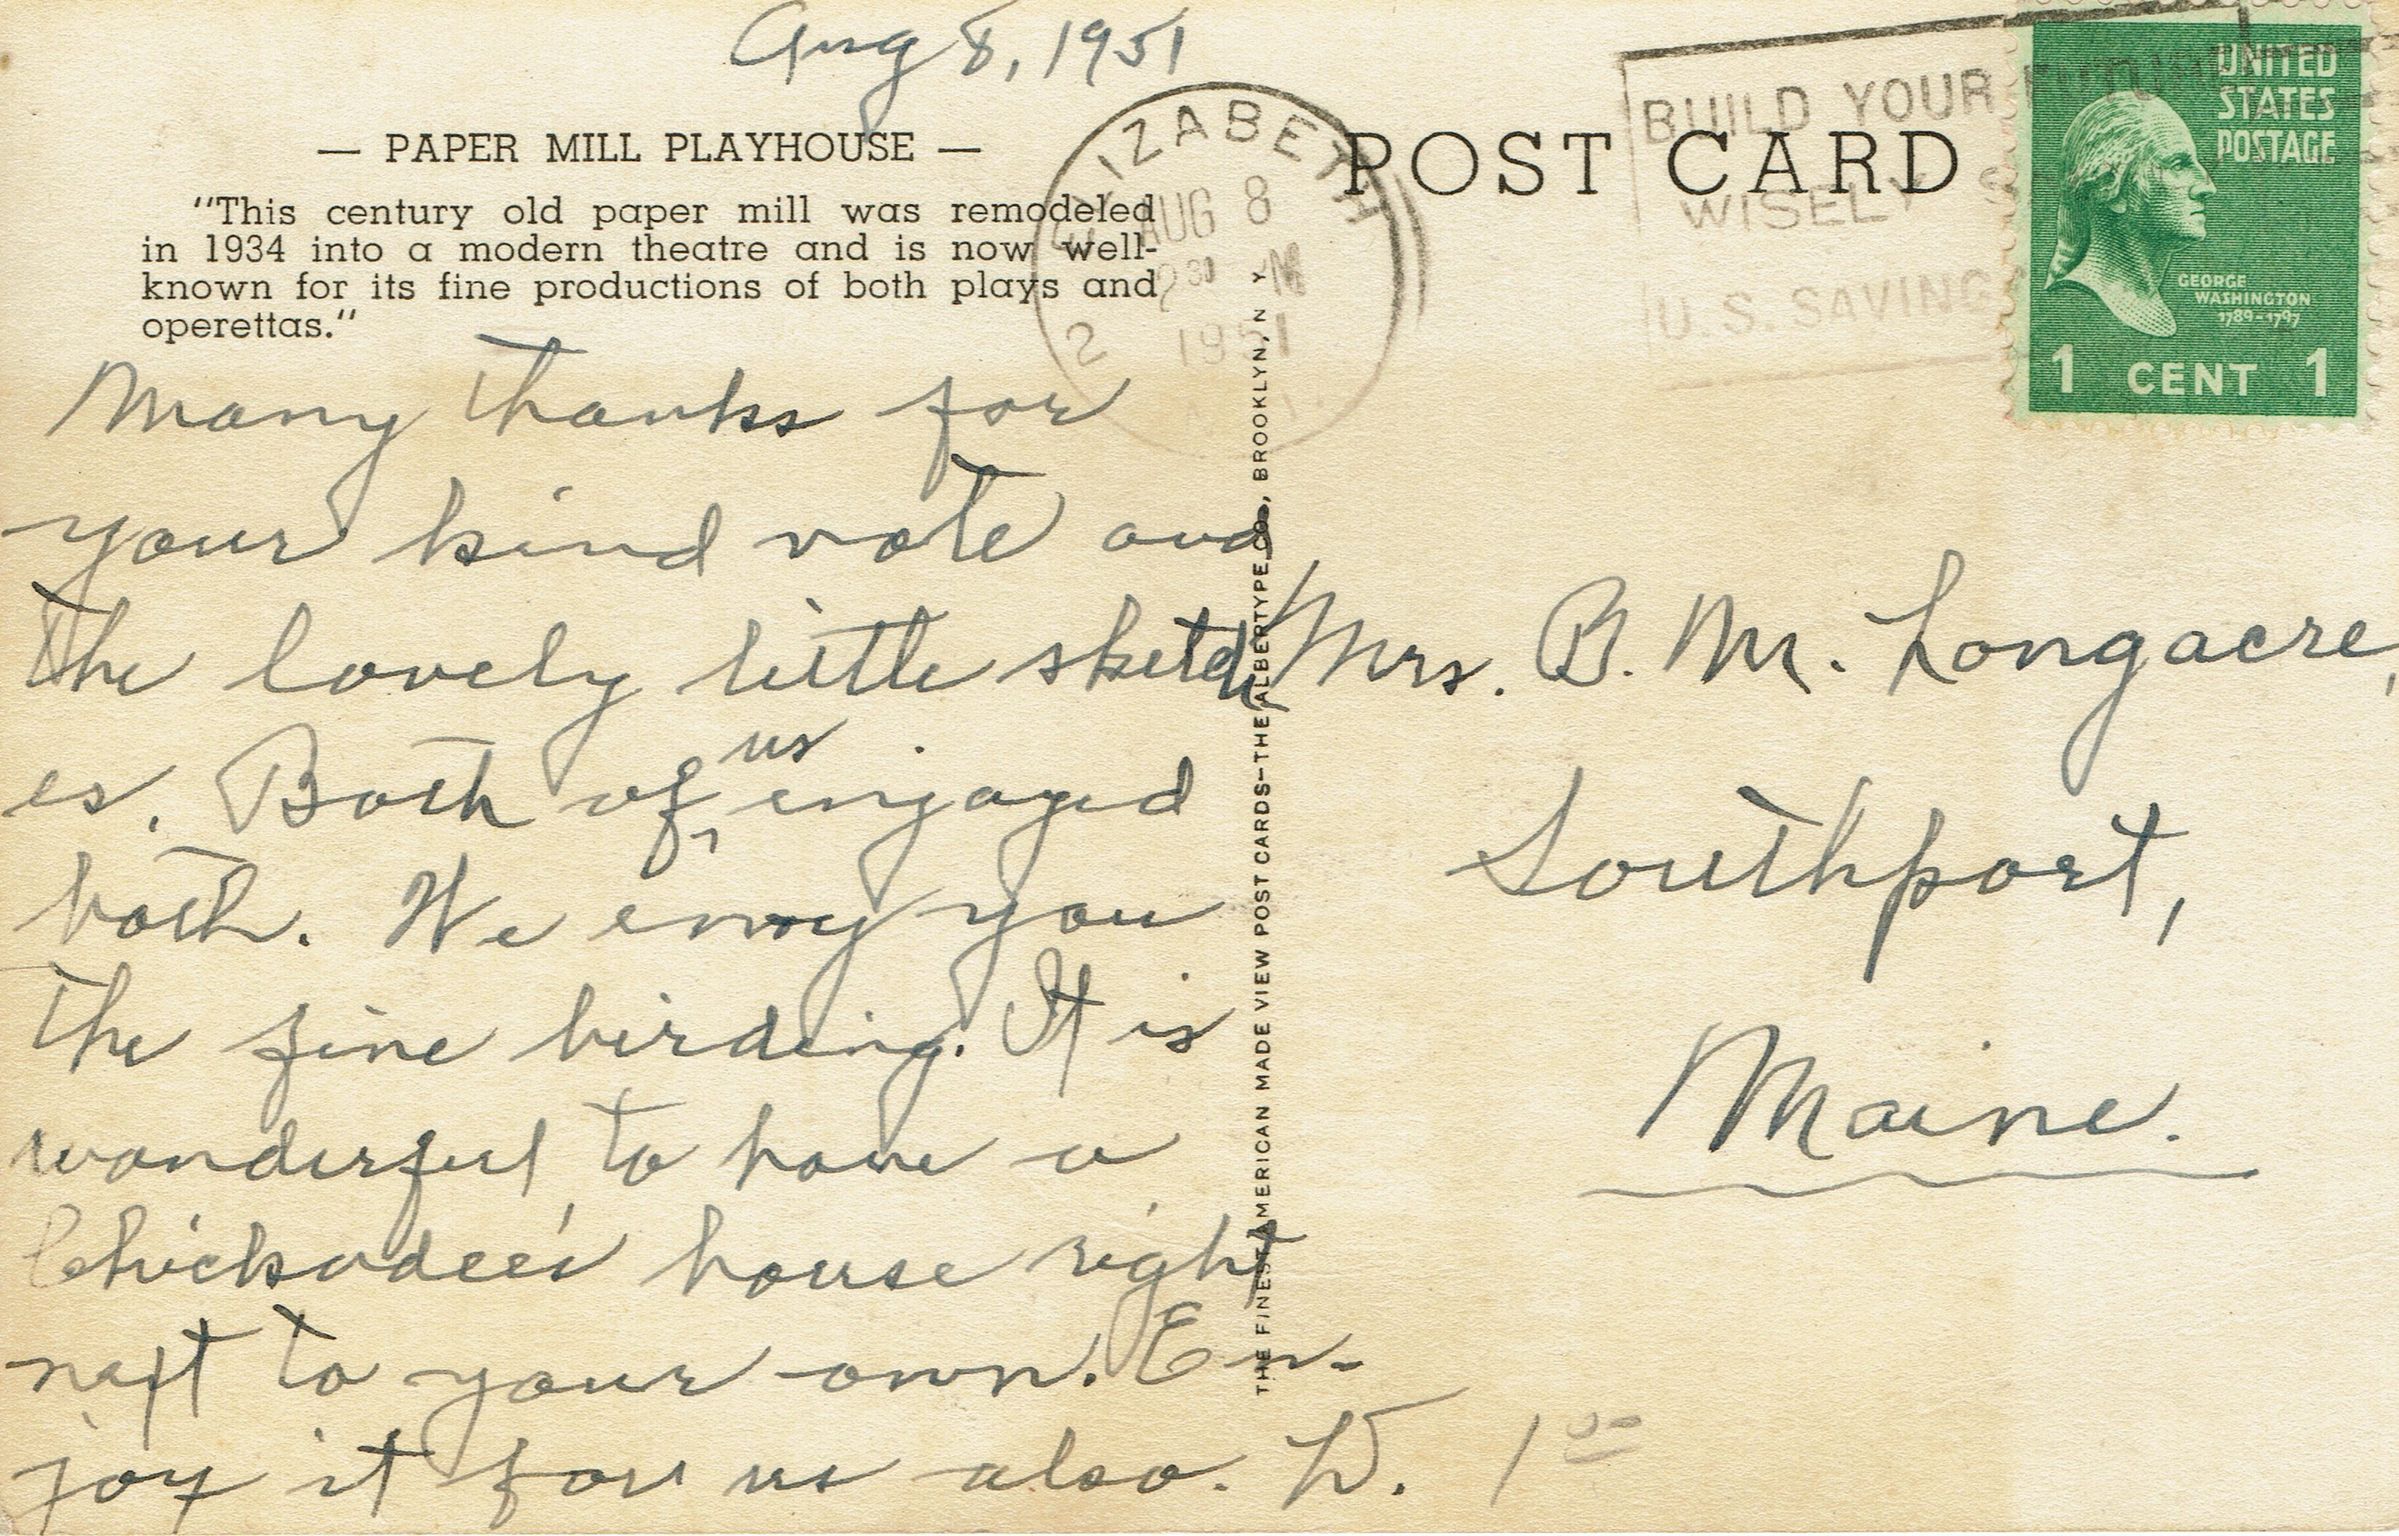 Aug 8, 1951
— PAPER MILL PLAYHOUSE —
"This century old paper mill was remodeled
in 1934 into a modern theatre and is now well-
known for its fine productions of both plays and
operettas."
Many thanks for
your kind note and
the lovely little sketch
es. Both of us engaged
both. We envy you
the fine birding. It is
wonderful to have a
Chickadee's house right
next to your own. En-
joy it for us also. W.
THE FINEST AMERICAN MADE VIEW POST CARDS—THE ALBERTYPE CO., BROOKLYN, N Y
ELIZABETH
AUG 8
2 30 M
1951
2
POST CARD
BUILD YOUR FUTURE
WISELY
U.S. SAVINGS
UNITED
STATES
POSTAGE
GEORGE
WASHINGTON
1789-1797
1 CENT 1
Mrs. B. M. Longacre,
Southport,
Maine.